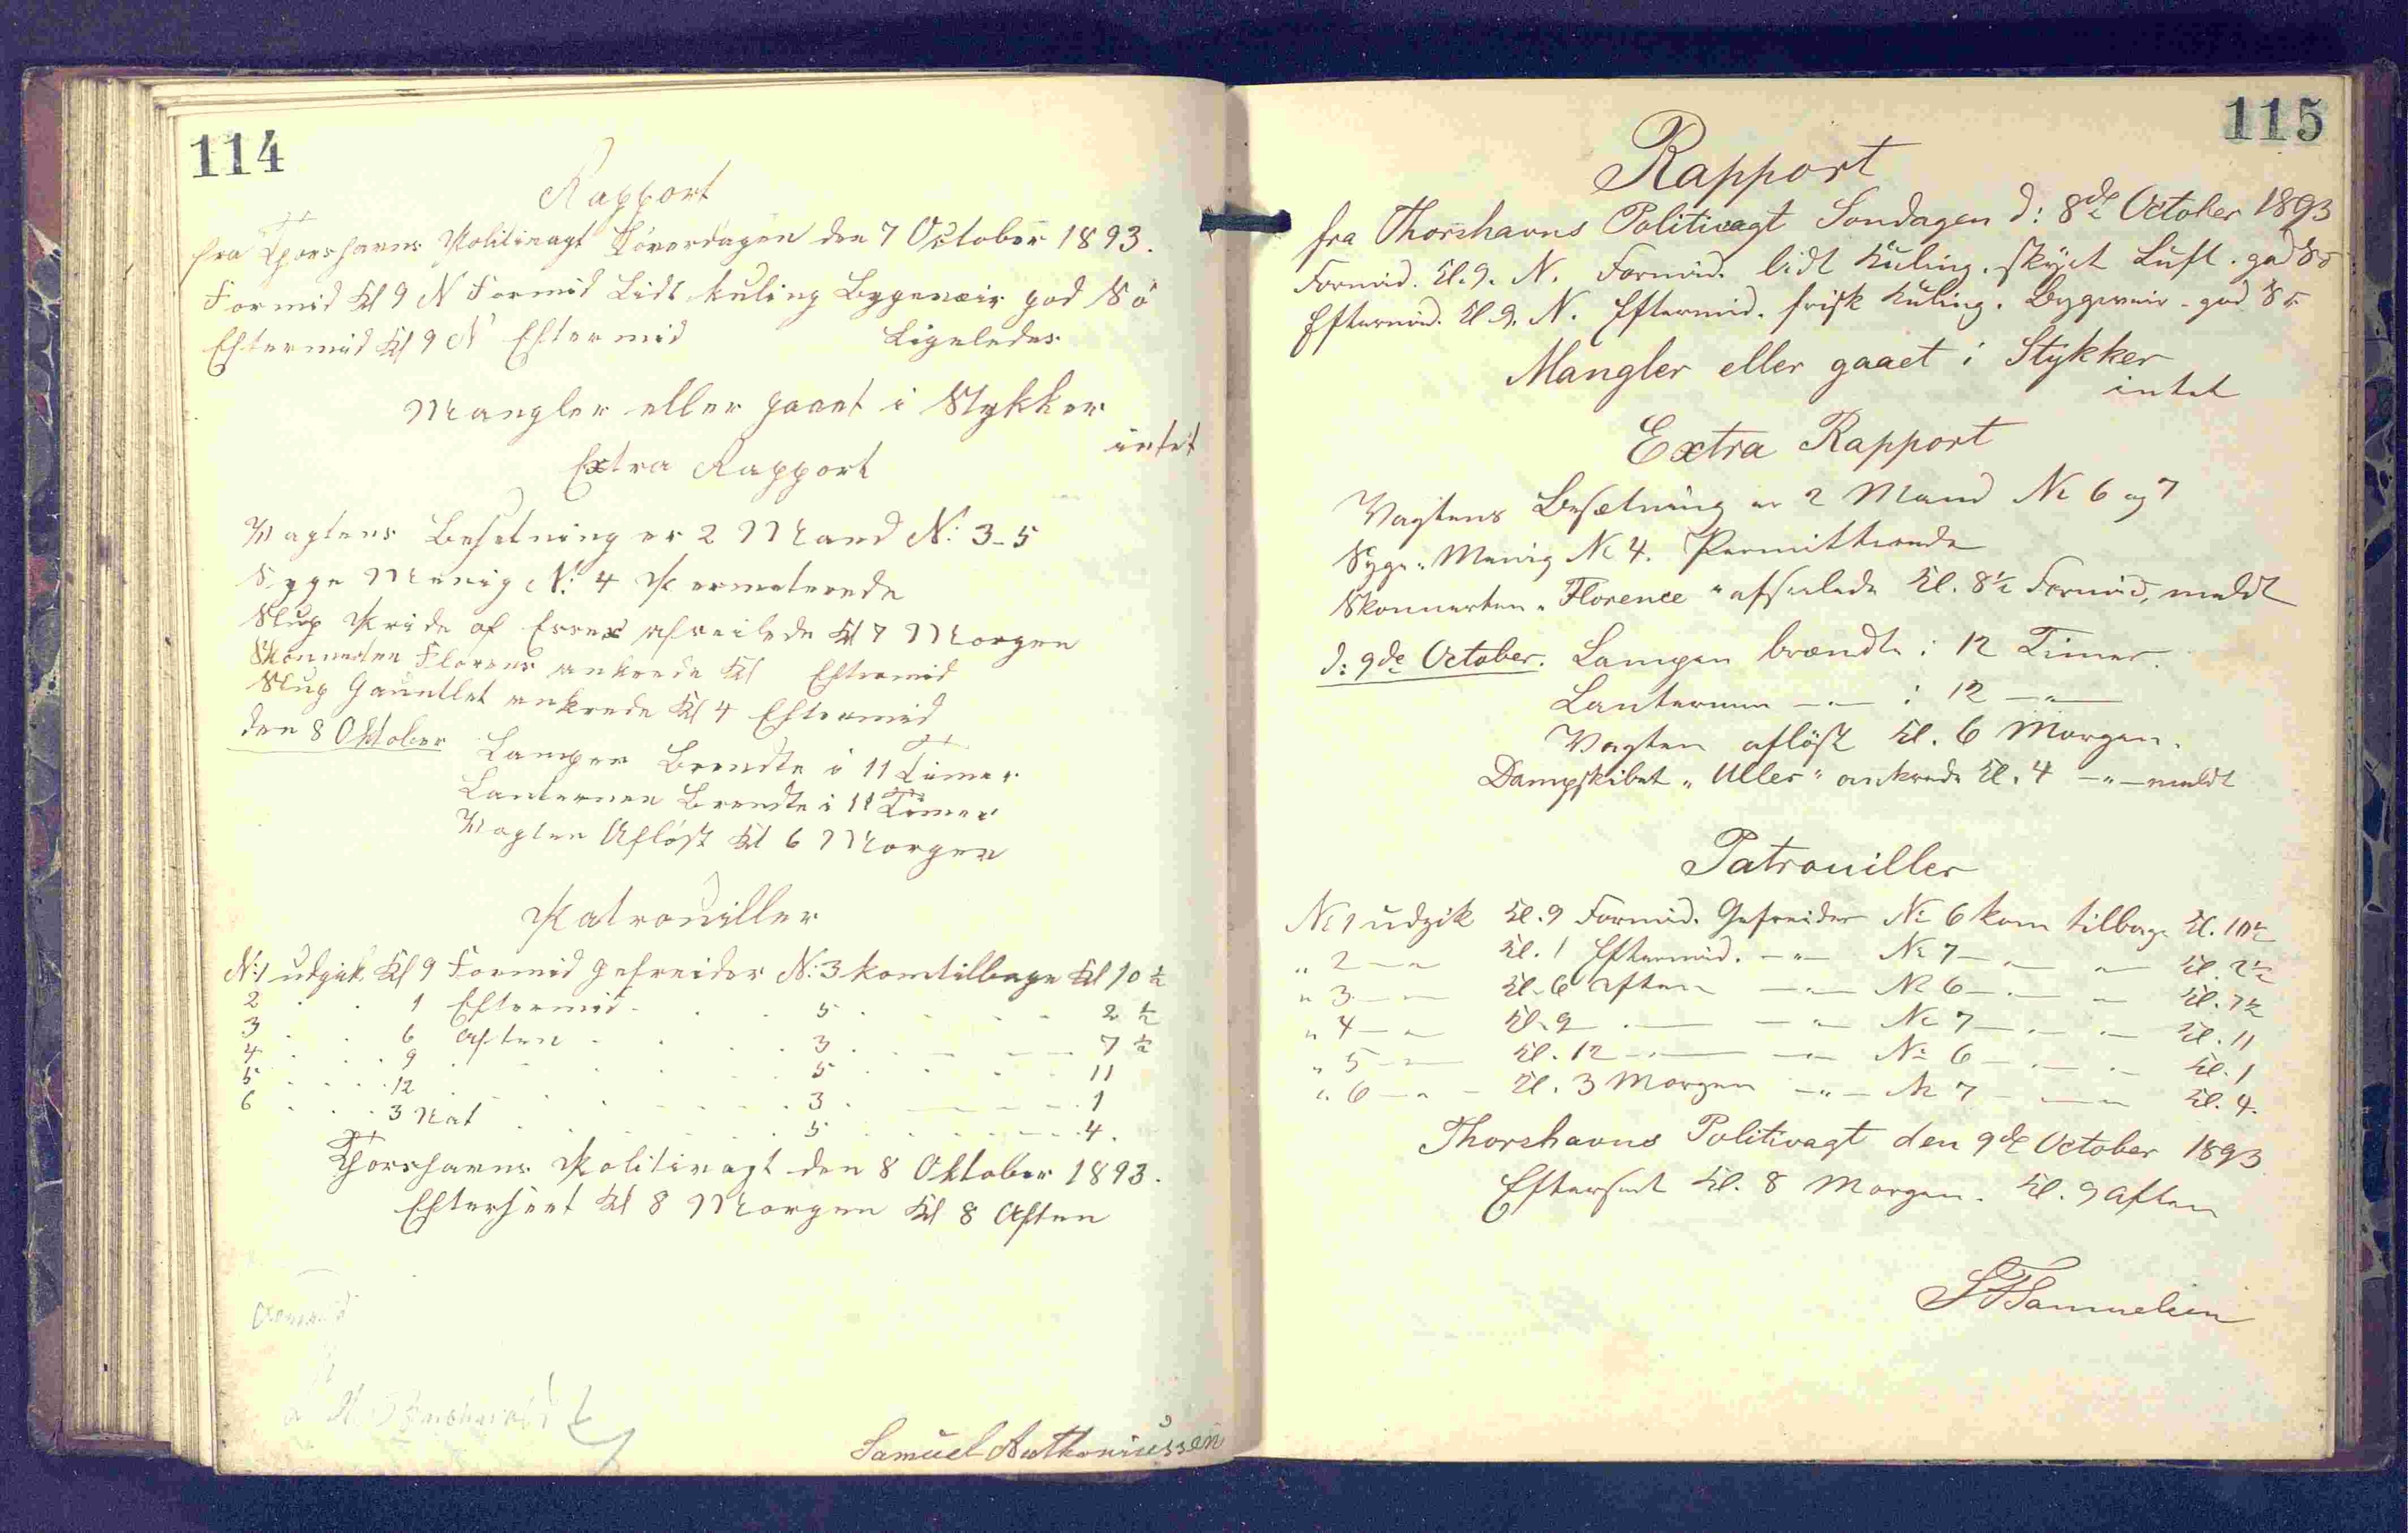 114
Rapport
fra Thorshavns Politivagt Löverdagen den 7 October 1893.
Formid Kl 9 N Formid Lidt kuling Bygeveir god Sö
Eftermid Kl 9 N Eftermid Ligeledes
Mangler eller gaaet i Stykker
intet
Extra Rapport
Vagtens Besetning er 2 Mand N: 3-5
Syge Menig N: 4 Permeterede
Slup Pride of Essex afseilede Kl 7 Morgen
Skonnerten Florens ankrede Kl Eftermid
Slup Gauntlet ankrede Kl 4 Eftermid
den 8 Oktober Lampen Brendte i 11 Timer
Lanternen Brendte i 11 Timer
Vagten Aflöst Kl 6 Morgen
Patrouiller
N: 1 udgik Kl 9 Formid Gefreider N: 3 kom tilbage Kl 10 ½
2 . . 1 Eftermid . . . 5 . . . . 2 ½
3 . . 6 Aften . . . 3 . . . . 7 ½
4 . . . 9 . . . . 5 . . . . 11
5 . . . . 12 . . . . 3 . . . . 1
6 . . . 3 Nat . . . . 5 . . . . 4.
Thorshavns Politivagt den 8 Oktober 1893.
Efterseet Kl 8 Morgen Kl 8 Aften
Samuel Anthoniussen
115
Rapport
fra Thorshavns Politivagt Söndagen d: 8de October 1893
Formid. Kl. 9. N. Formid. lidt Kuling. skyet Luft. god Sö
Eftermid. Kl. 9. N. Eftermid. frisk Kuling. Bygeveir. god Sö
Mangler eller gaaet i Stykker
intet
Extra Rapport
Vagtens Besætning er 2 Mand No 6 og 7
Syge: Menig No 4. Permitterede
Skonnerten "Florence" afseilede Kl. 8½ Formid, meldt
d: 9de October. Lampen brændte i 12 Timer.
Lanternen — " — i 12 — " —
Vagten aflöst Kl. 6 Morgen.
Dampskibet "Uller" ankrede Kl. 4 — " — meldt
Patrouiller
No 1 udgik Kl. 9 Formid. Gefreider No 6 kom tilbage Kl. 10½
" 2 — " Kl. 1 Eftermid. — " — No 7 — " — " — Kl. 2½
" 3 — " Kl. 6 Aften — " — No 6 — " — " — Kl. 7½
" 4 — " Kl. 9 — " — — " — No 7 — " — " — Kl. 11
" 5 — " Kl. 12 — " — — " — No 6 — " — " — Kl. 1
" 6 — " — Kl. 3 Morgen — " — No 7 — " — " — Kl. 4.
Thorshavns Politivagt den 9de October 1893
Efterseet Kl. 8 Morgen. Kl. 9 Aften
Samuelsen